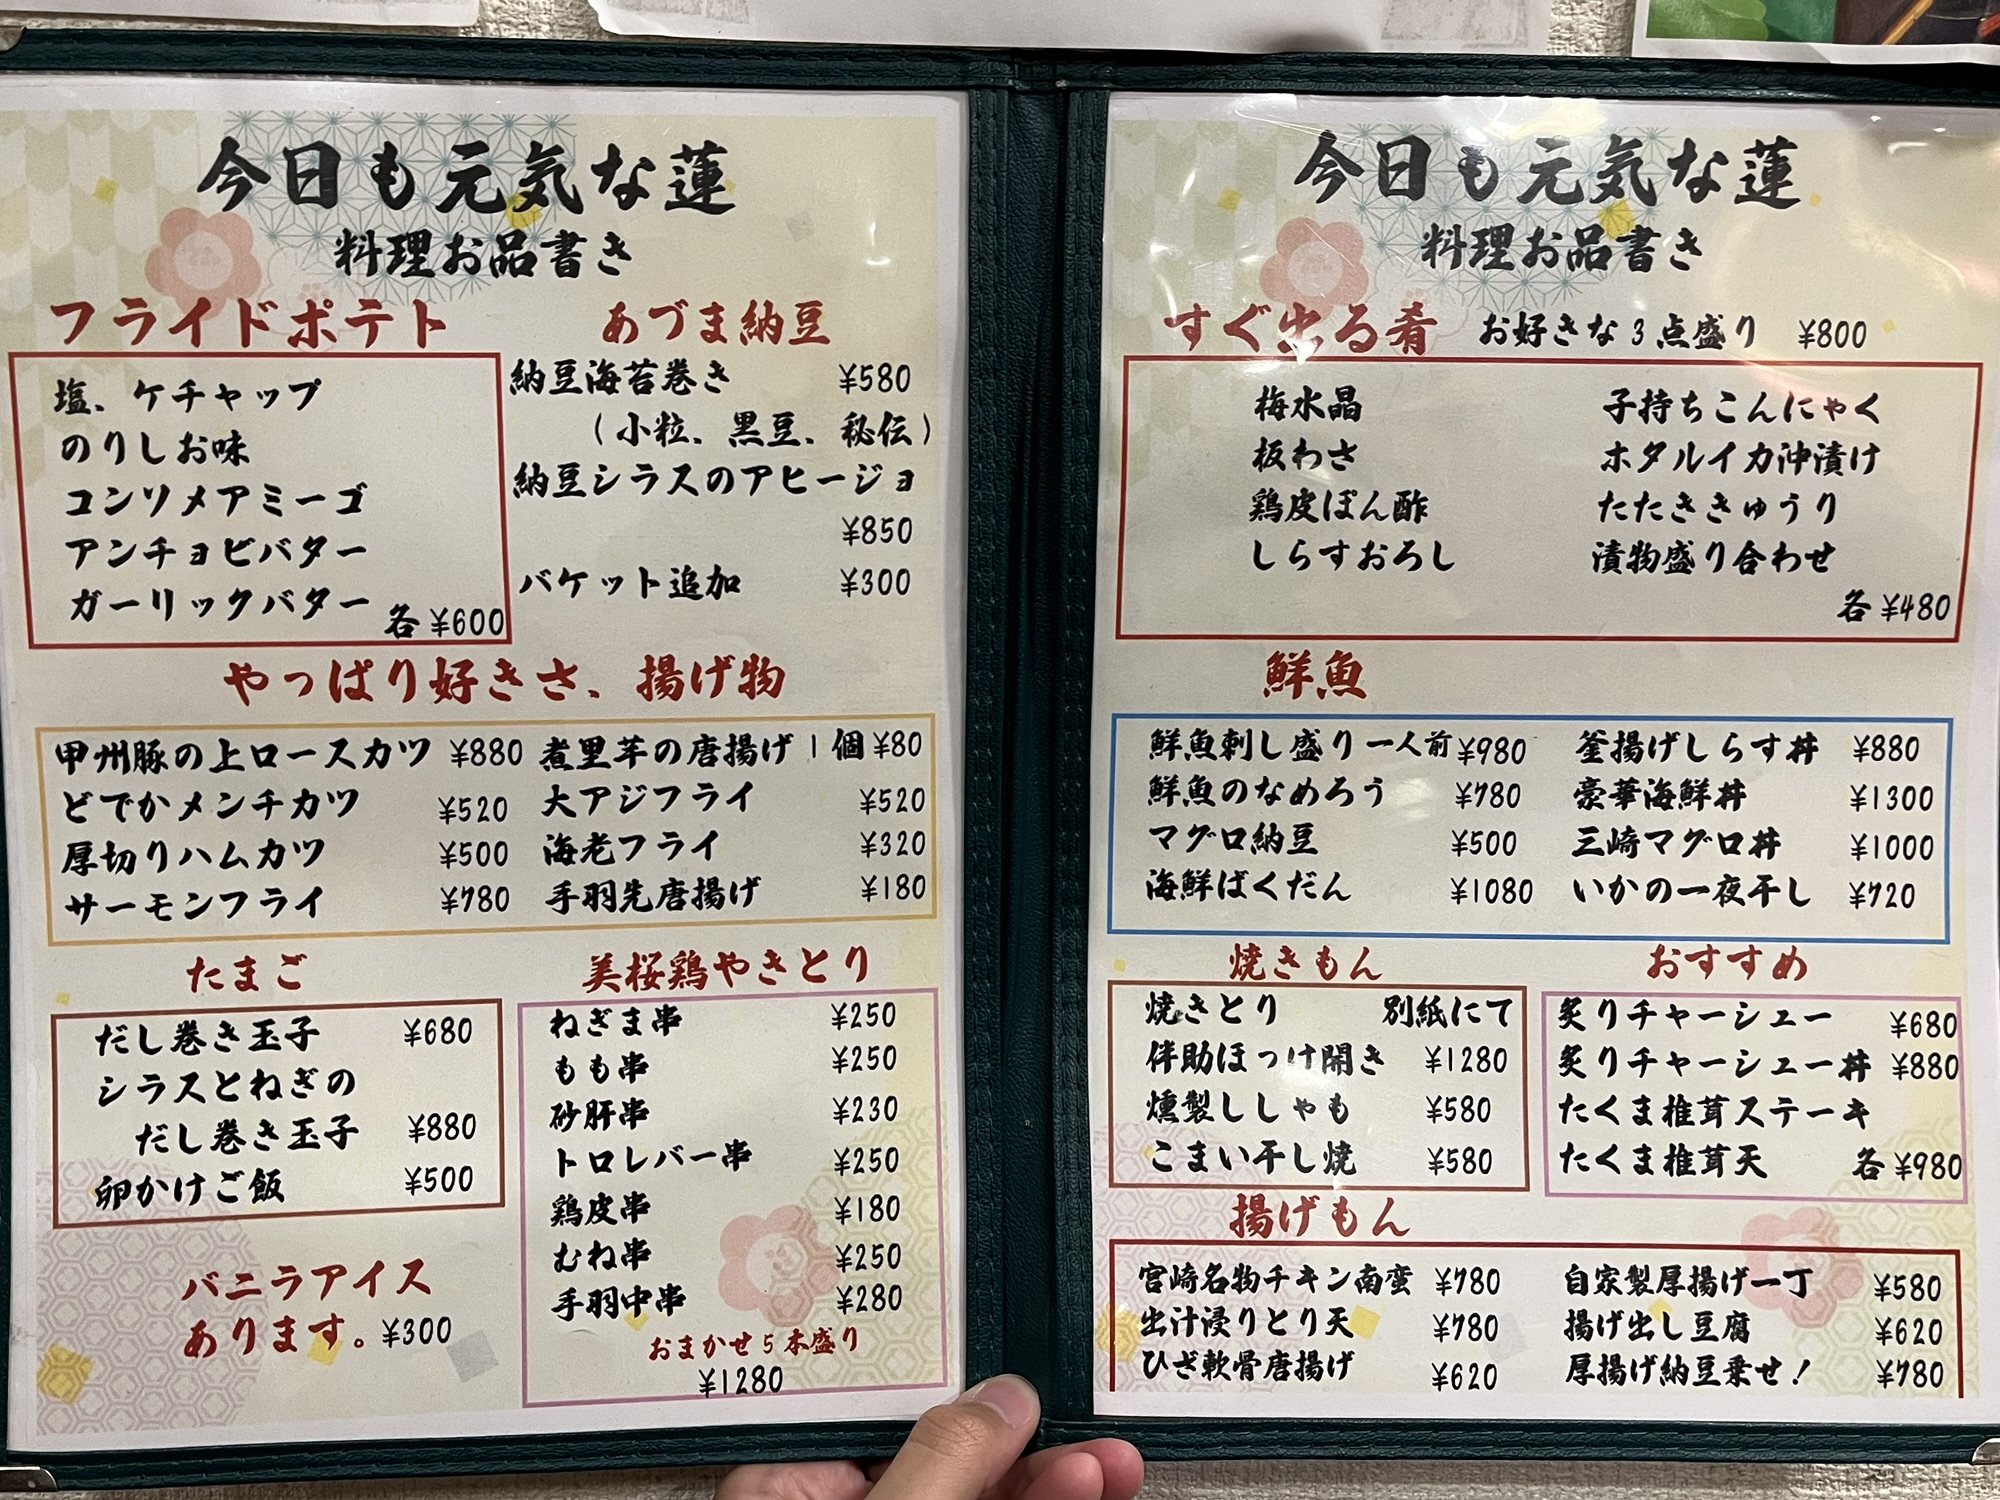 今日も元気な蓮
料理お品書き
フライドポテト
塩、ケチャップ
のりしお味
コンソメアミーゴ
アンチョビバター
ガーリックバター 各 ¥600
あづま納豆
納豆海苔巻き ¥580
(小粒、黒豆、秘伝)
納豆シラスのアヒージョ
¥850
バケット追加 ¥300
やっぱり好きさ、揚げ物
甲州豚の上ロースカツ ¥880 煮里芋の唐揚げ 1個 ¥80
どでかメンチカツ ¥520 大アジフライ ¥520
厚切りハムカツ ¥500 海老フライ ¥320
サーモンフライ ¥780 手羽先唐揚げ ¥180
たまご
だし巻き玉子 ¥680
シラスとねぎの
だし巻き玉子 ¥880
卵かけご飯 ¥500
バニラアイス
あります。¥300
美桜鶏やきとり
ねぎま串 ¥250
もも串 ¥250
砂肝串 ¥230
トロレバー串 ¥250
鶏皮串 ¥180
むね串 ¥250
手羽中串 ¥280
おまかせ5本盛り
¥1280
今日も元気な蓮
料理お品書き
すぐ出る肴 お好きな3点盛り ¥800
梅水晶 子持ちこんにゃく
板わさ ホタルイカ沖漬け
鶏皮ぽん酢 たたききゅうり
しらすおろし 漬物盛り合わせ
各 ¥480
鮮魚
鮮魚刺し盛り一人前 ¥980 釜揚げしらす丼 ¥880
鮮魚のなめろう ¥780 豪華海鮮丼 ¥1300
マグロ納豆 ¥500 三崎マグロ丼 ¥1000
海鮮ばくだん ¥1080 いかの一夜干し ¥720
焼きもん
焼きとり 別紙にて
伴助ほっけ開き ¥1280
燻製ししゃも ¥580
こまい干し焼 ¥580
おすすめ
炙りチャーシュー ¥680
炙りチャーシュー丼 ¥880
たくま椎茸ステーキ
たくま椎茸天 各 ¥980
揚げもん
宮崎名物チキン南蛮 ¥780 自家製厚揚げ一丁 ¥580
出汁浸りとり天 ¥780 揚げ出し豆腐 ¥620
ひざ軟骨唐揚げ ¥620 厚揚げ納豆乗せ! ¥780